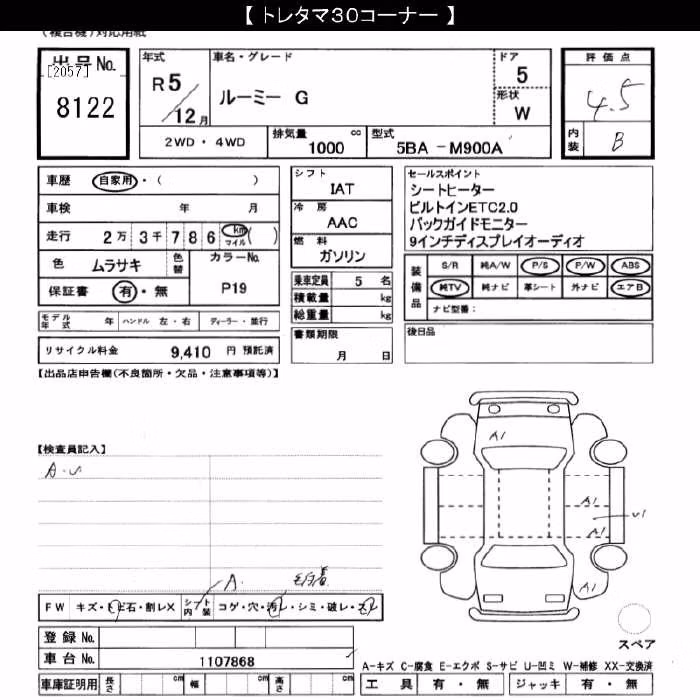 【 トレタマ30コーナー 】
(複合機)対応用紙
出品No.
[2057]
8122
年式
R5/12月
車名・グレード
ルーミー G
ドア
5
形状
W
評価点
4.5
内装
B
2WD・4WD
排気量 1000 cc
型式 5BA -M900A
車歴 自家用・( )
車検 年 月
走行 2万3千786 km マイル ( )
色 ムラサキ 色替 カラーNo.
保証書 有・無 P19
シフト
IAT
冷房
AAC
燃料
ガソリン
乗車定員 5 名
積載量 kg
総重量 kg
セールスポイント
シートヒーター
ビルトインETC2.0
バックガイドモニター
9インチディスプレイオーディオ
装備品
S/R 純A/W P/S P/W ABS
純TV 純ナビ 革シート 外ナビ エアB
ナビ型番:
モデル年式 年 ハンドル 左・右 ディーラー・並行
リサイクル料金 9,410 円 預託済
書類期限
月 日
後日品
【出品店申告欄(不良箇所・欠品・注意事項等)】
【検査員記入】
A・U
A1
A1
A1
U1
A1
A.
FW キズ・トビ石・割レX シート内装 コゲ・穴・汚レ・シミ・破レ・スレ
登録 No.
車台 No. 1107868
スペア
A-キズ C-腐食 E-エクボ S-サビ U-凹ミ W-補修 XX-交換済
車庫証明用 長さ cm 幅 cm 高さ cm
工具 有・無 ジャッキ 有・無